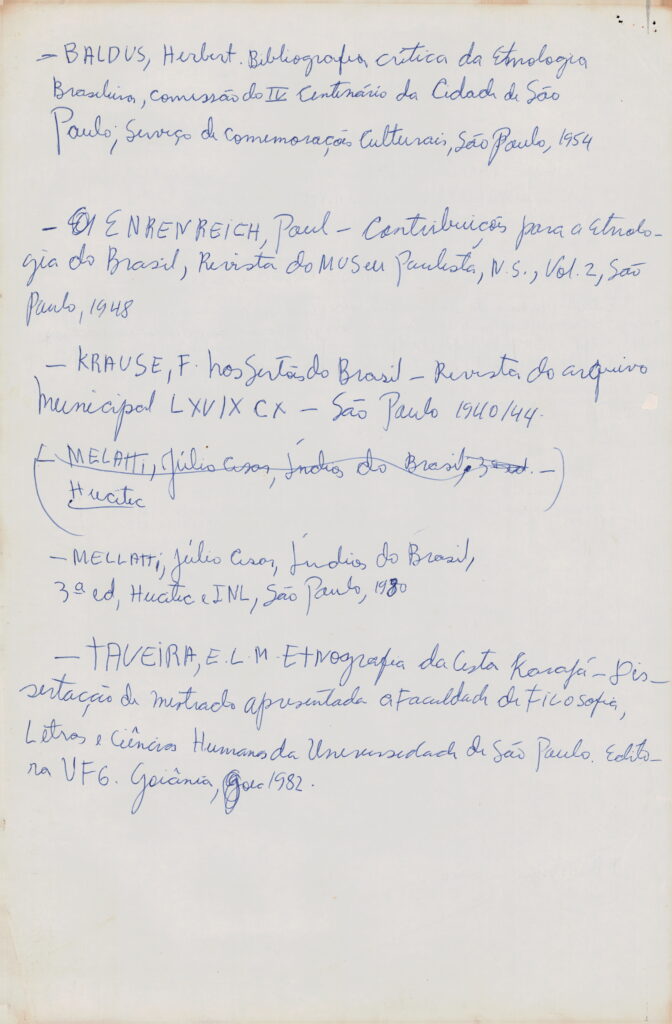 - BALDUS, Herbert. Bibliografia crítica da Etnologia
Brasileira, comissão do IV Centenário da Cidade de São
Paulo, Serviço de comemorações Culturais, São Paulo, 1954
- ENRENREICH, Paul - Contribuições para a Etnolo-
gia do Brasil, Revista do MUSEU Paulista, N.S., Vol. 2, São
Paulo, 1948
- KRAUSE, F. nos Sertões do Brasil - Revista do arquivo
Municipal LXVI XCX - São Paulo 1940/44.
(- MELATTI, Júlio Cesar, Índios do Brasil, 3ª ed. -
Hucitec)
- MELLATTI, Júlio Cesar, Índios do Brasil,
3ª ed, Hucitec e INL, São Paulo, 1980
- TAVEIRA, E. L. M. Etnografia da Cesta Karajá - Dis-
sertação de mestrado apresentada a Faculdade de Filosofia,
Letras e Ciências Humanas da Universidade de São Paulo. Edito-
ra UFG. Goiânia, 1982.